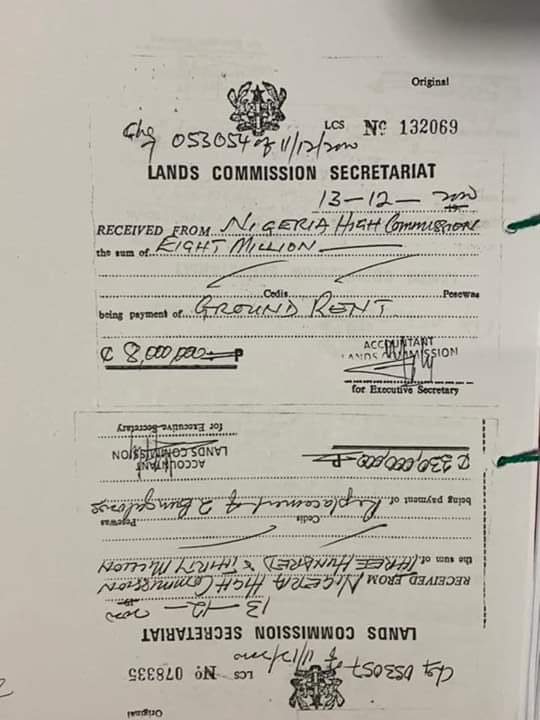 Original
LCS No 132069
Chq 053054 of 11/12/2000
LANDS COMMISSION SECRETARIAT
13-12-2000
RECEIVED FROM NIGERIA HIGH COMMISSION
the sum of EIGHT MILLION
Cedis Pesewas
being payment of GROUND RENT
₵ 8,000,000 P
ACCOUNTANT
LANDS COMMISSION
for Executive Secretary
Original
LCS No 078335
Chq 053057 of 11/12/2000
LANDS COMMISSION SECRETARIAT
13-12-2000
RECEIVED FROM NIGERIA HIGH COMMISSION
the sum of THREE HUNDRED & THIRTY MILLION
Cedis Pesewas
being payment of Replacement of 2 Bungalows
₵ 330,000,000 P
ACCOUNTANT
LANDS COMMISSION
for Executive Secretary